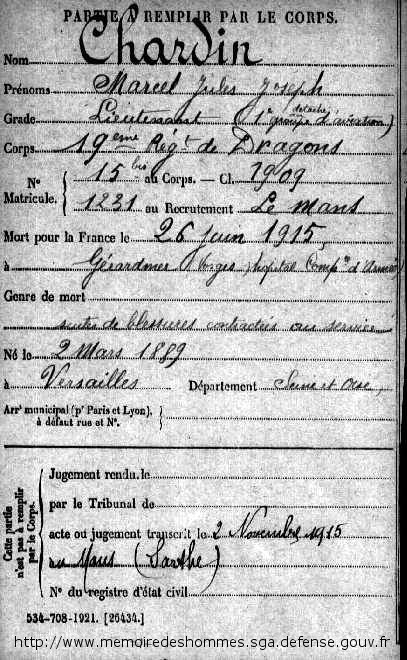 PARTIE À REMPLIR PAR LE CORPS.
Nom Chardin
Prénoms Marcel Jules Joseph
Grade Lieutenant (détaché 1er groupe d'aviation)
Corps 19ème Régt de Dragons
N° Matricule. { 15 bis au Corps. — Cl. 1909
1231 au Recrutement Le Mans
Mort pour la France le 26 juin 1915
à Gérardmer Vosges, hôpital
Genre de mort
suites de blessures contractées au service
Né le 2 Mars 1889
à Versailles Département Seine et Oise
Arrt municipal (pr Paris et Lyon), à défaut rue et N°.
Cette partie n'est pas à remplir par le Corps.
Jugement rendu le
par le Tribunal de
acte ou jugement transcrit le 2 Novembre 1915
au Mans (Sarthe)
N° du registre d'état civil
534-708-1921. [26434.]
http://www.memoiredeshommes.sga.defense.gouv.fr